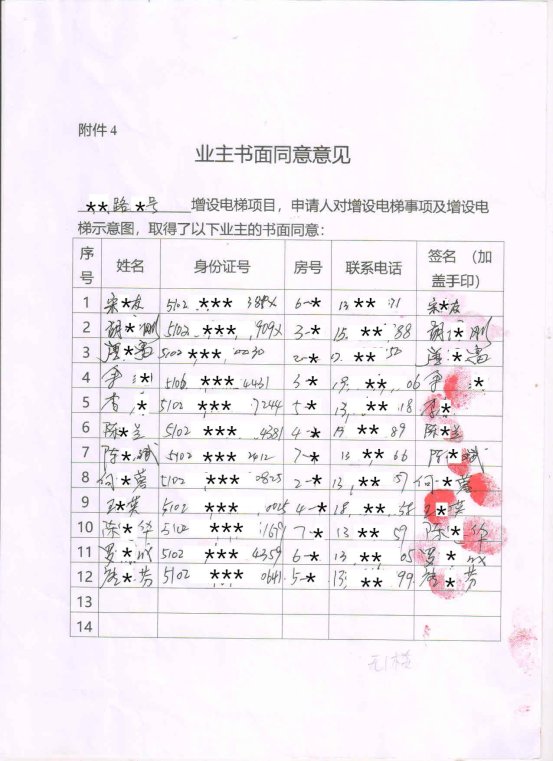 附件4
业主书面同意意见
**路*号 增设电梯项目，申请人对增设电梯事项及增设电
梯示意图，取得了以下业主的书面同意：
序号 姓名 身份证号 房号 联系电话 签名（加盖手印）
1 宋*友 5102 *** 6-* 13 ** 71 宋*友
2 胡*刚 5102 *** 909X 3-* 15 ** 88 胡*刚
3 *富 5102 *** 0030 2-* ** *富
4 李* 5106 *** 4431 3-* ** 06 李*
5 李* 5102 *** 7244 5-* 13 ** 18 李*
6 陈*兰 5102 *** 4381 4-* ** 89 陈*兰
7 陈*斌 5102 *** 2412 7-* 13 ** 66 陈*斌
8 何*蓉 5102 *** 0825 2-* 13 ** 57 何*蓉
9 王*英 5102 *** 4-* 18 ** 王*英
10 陈*华 5102 *** 169 7-* 13 ** 59 陈*华
11 罗* 5102 *** 4359 6-* 13 ** 05 罗*
12 *芳 5102 *** 0641 5-* 13 ** 99 *芳
13
14
无1楼